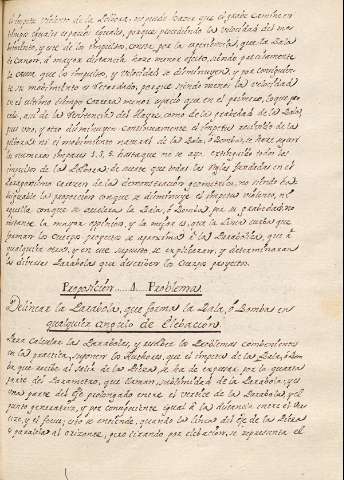 el impetu violento de la Polvora, no puede hacer que el grave camine en
tiempos iguales espacios iguales, porque procediendo las velocidad del mo-
bimiento, y este de los impulsos, consta por la experiencia, que la Bala
de Cañon, á mayor distancia haze menor efecto, siendo puntualmente
la causa, que los impulsos, y velocidad se disminuyen, y por consiguien-
te su mobimiento es Retardado, porque siendo menor la velocidad
en el ultimo tiempo correrá menor espacio que en el primero, lo que pro-
viene, asi de la resistencia del Ayre, como de la gravedad de la Bala,
pues uno, y otro disminuyen continuamente el impetu
polvora en el mobimiento natural de la Bala, ó Bomba, se haze segun
los numeros impares 1. 3. 5. hasta que no se aya extinguido todos los
impulsos de la Polvora: de suerte que todas las Reglas fundadas en el
carecen de la demonstracion geometrica, no siendo
la proporcion con que se disminuye el impetu violento, ni
aquella con que se acelera la Bala, ó Bomba por su gravedad: no
ostante la mayor opinion, y la mejor es, que la linea curba que
forman los Cuerpos proyectos se aproxima á la Parabolica, que á
qualquiera otra, por este supuesto se explicarán, y determinarán
las diversas Parabolas que describen los Cuerpos proyectos.
Proposicion 1. Problema
Delinear la Parabola, que forma la Bala, ó Bomba en
qualquier angulo de Elebacion.
Para calcular las Parabolas, y resolber los Problemas combenientes
en la practica, suponen los Authores, que el impetu de las Balas, ó Bom-
bas que recibe al salir de las Piezas se ha de expresar por la quarta
parte del Parametro, que llaman, sublimidad de la Parabola; y es
una parte del Eje prolongado entre el vertice de la Parabola, y el
punto generatriz, y por consiguiente igual á la distancia entre el Ver-
tice, y el focus; esto se entiende, quando la linea del Eje de la Pieza
es paralela al orizonte; pero tirando, por elebacion, se representa el